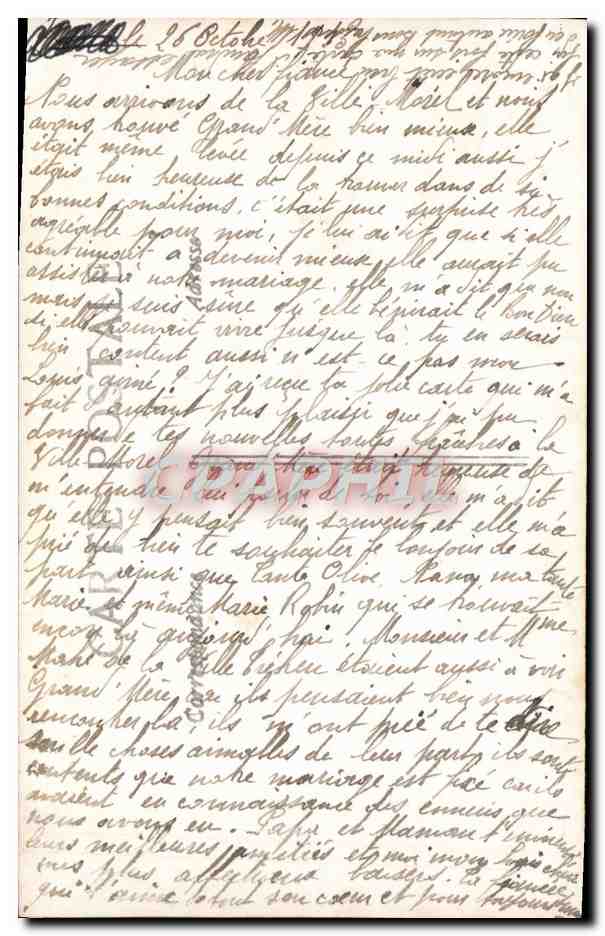 le 26 Octobre
Mon cher fiancé
Nous arrivons de la Ville Morel et nous
avons trouvé Grand'Mère bien mieux, elle
était même levée depuis ce midi aussi j'
étais bien heureuse de la trouver dans de si
bonnes conditions, c'était une surprise très
agréable pour moi, je lui ai dit que si elle
continuait à devenir mieux elle aurait pu
assister à notre mariage. elle m'a dit que non
mais je suis sûre qu'elle bénirait le Bon Dieu
si elle pouvait vivre jusque là. tu en serais
bien content aussi n'est-ce pas mon
Louis aimé? J'ai reçue ta jolie carte qui m'a
fait d'autant plus plaisir que j'ai pu
donner de tes nouvelles toutes fraîches à la
Ville Morel Grand'Mère était heureuse de
m'entendre parler de toi, elle m'a dit
qu'elle y pensait bien souvent et elle m'a
prié de bien te souhaiter le bonjour de sa
part ainsi que Tante Olive, Nana, ma tante
Marie et même Marie Robin qui se trouvait
encore là aujourd'hui. Monsieur et Mme
Mahé de la Ville étaient aussi à voir
Grand'Mère, car ils pensaient bien nous
rencontrer là, ils m'ont prié de te dire
mille choses aimables de leur part, ils sont
contents que notre mariage est fixé car ils
avaient eu connaissance des ennuis que
nous avons eu. Papa et Maman t'envoient
leurs meilleures amitiés et moi mon Louis chéri
mes plus affectueux baisers. Ta fiancée
qui t'aime de tout son cœur et pour toujours
CARTE POSTALE
Correspondance
Adresse
CPAPHIL